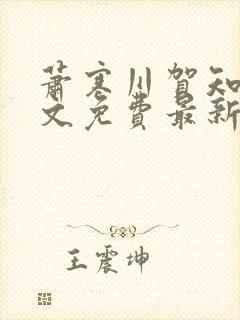 萧寒川贺知
文免费最新
王震坤